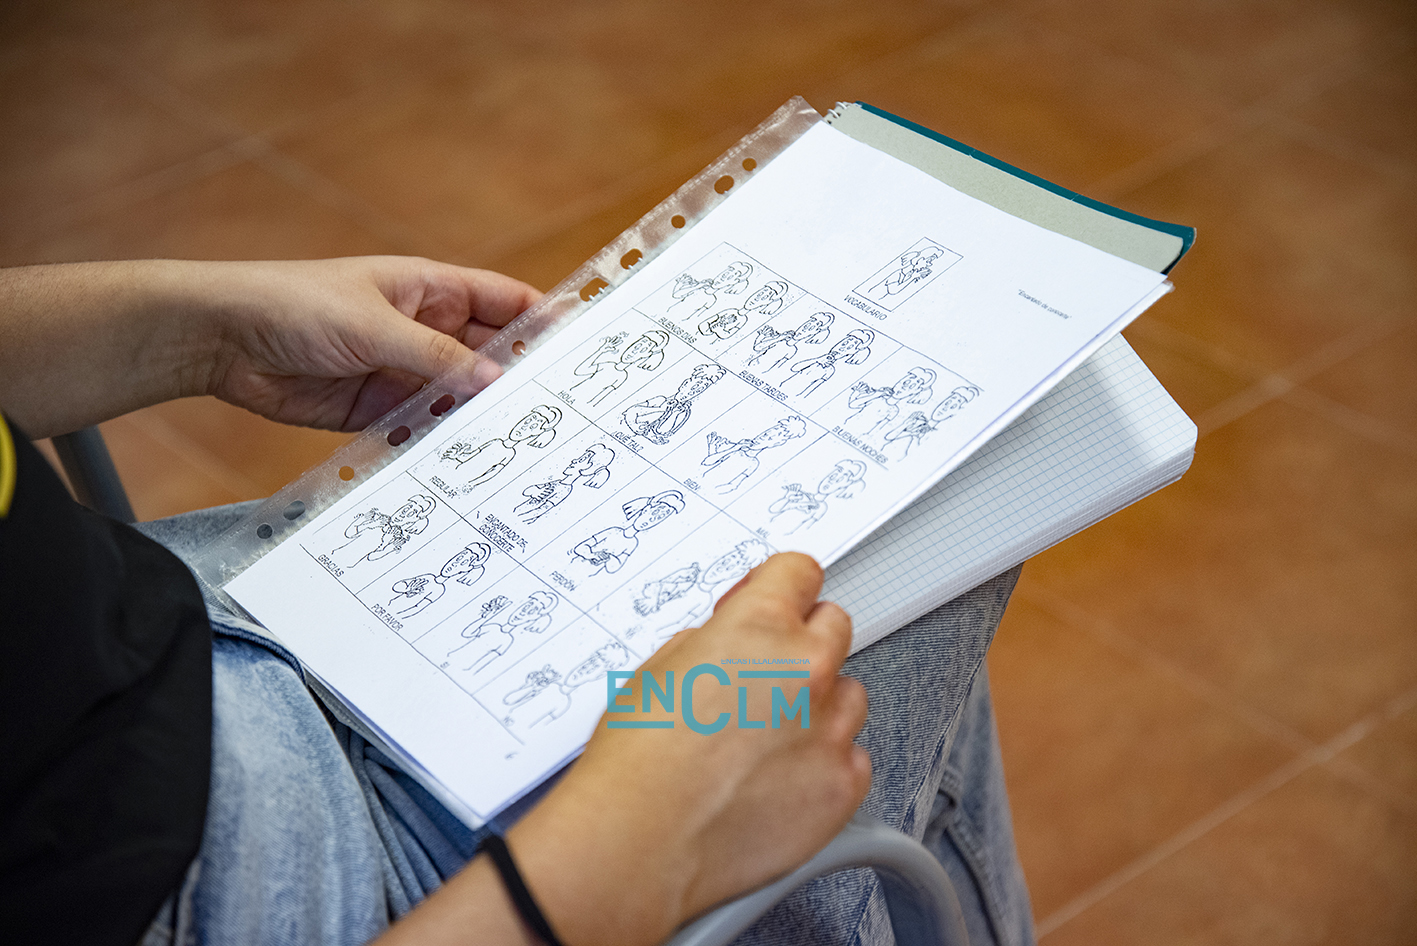 "Encantado de conocerte"
VOCABULARIO
BUENOS DIAS
BUENAS TARDES
BUENAS NOCHES
HOLA
¿QUÉ TAL?
BIEN
MAL
REGULAR
"ENCANTADO DE
CONOCERTE"
PERDÓN
GRACIAS
POR FAVOR
SI
NO
ENCASTILLALAMANCHA
ENCLM